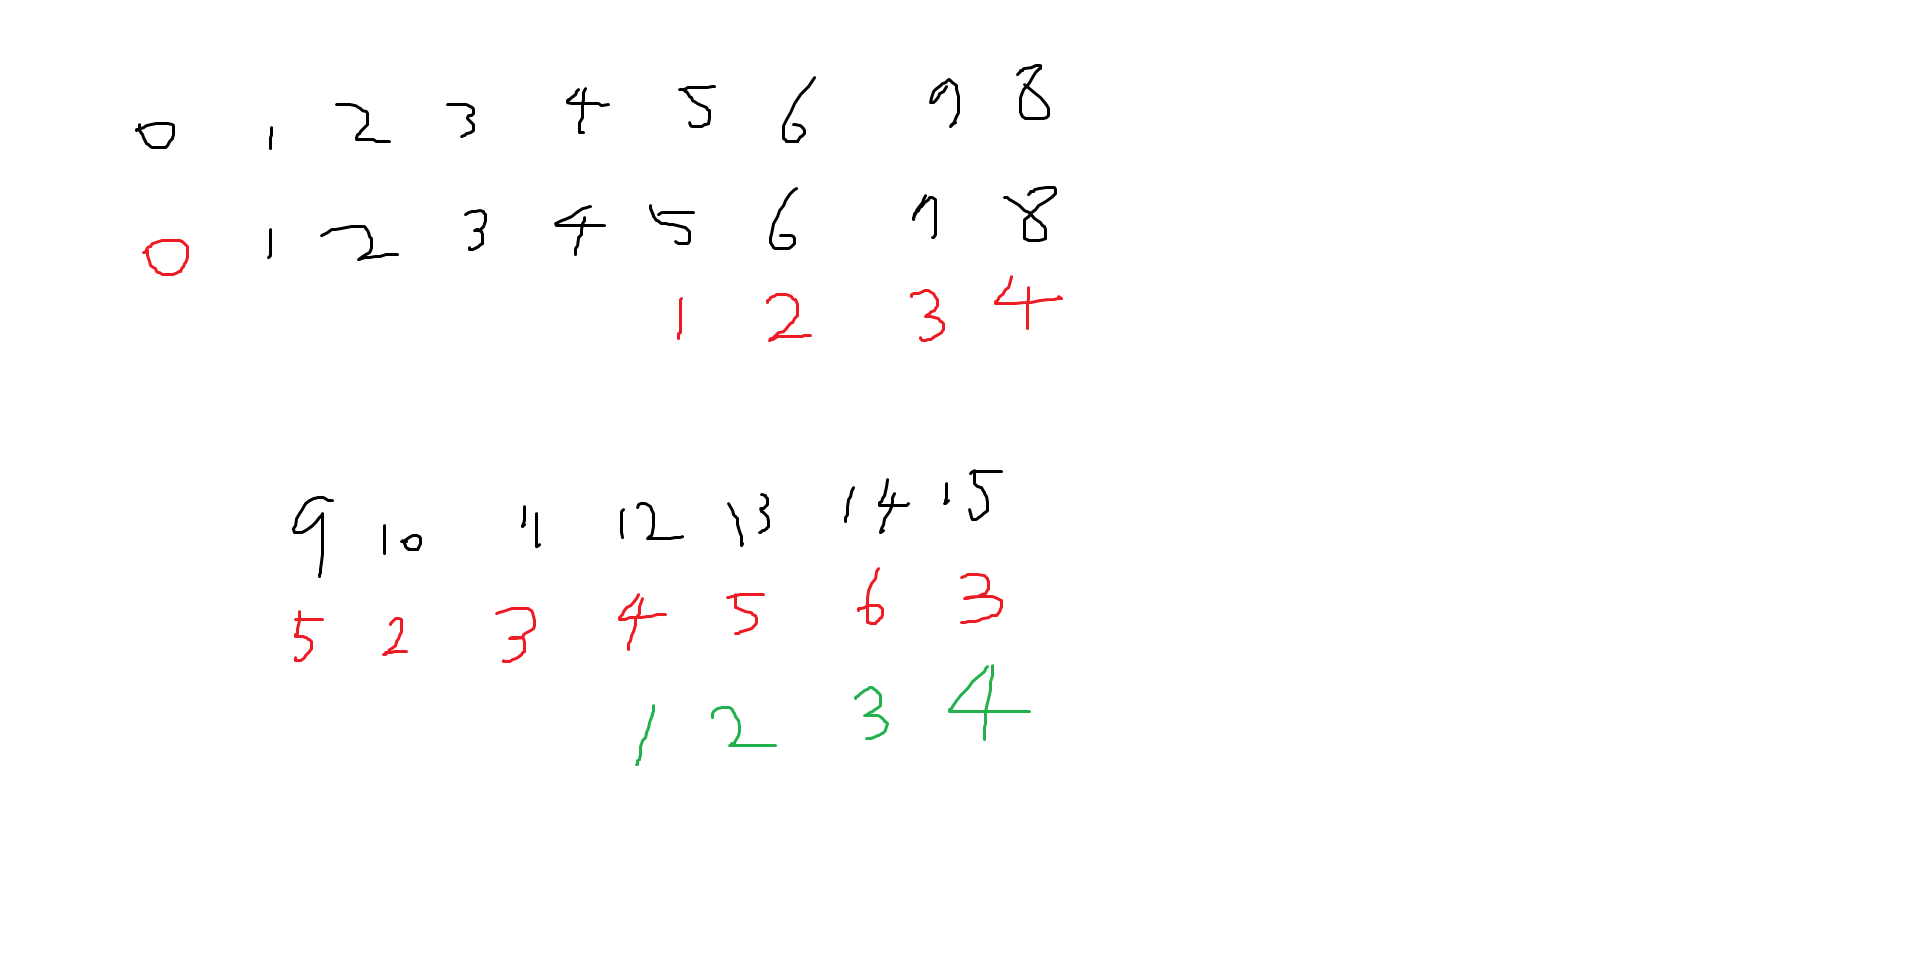 0 1 2 3 4 5 6 7 8
0 1 2 3 4 5 6 7 8
1 2 3 4
9 10 11 12 13 14 15
5 2 3 4 5 6 3
1 2 3 4